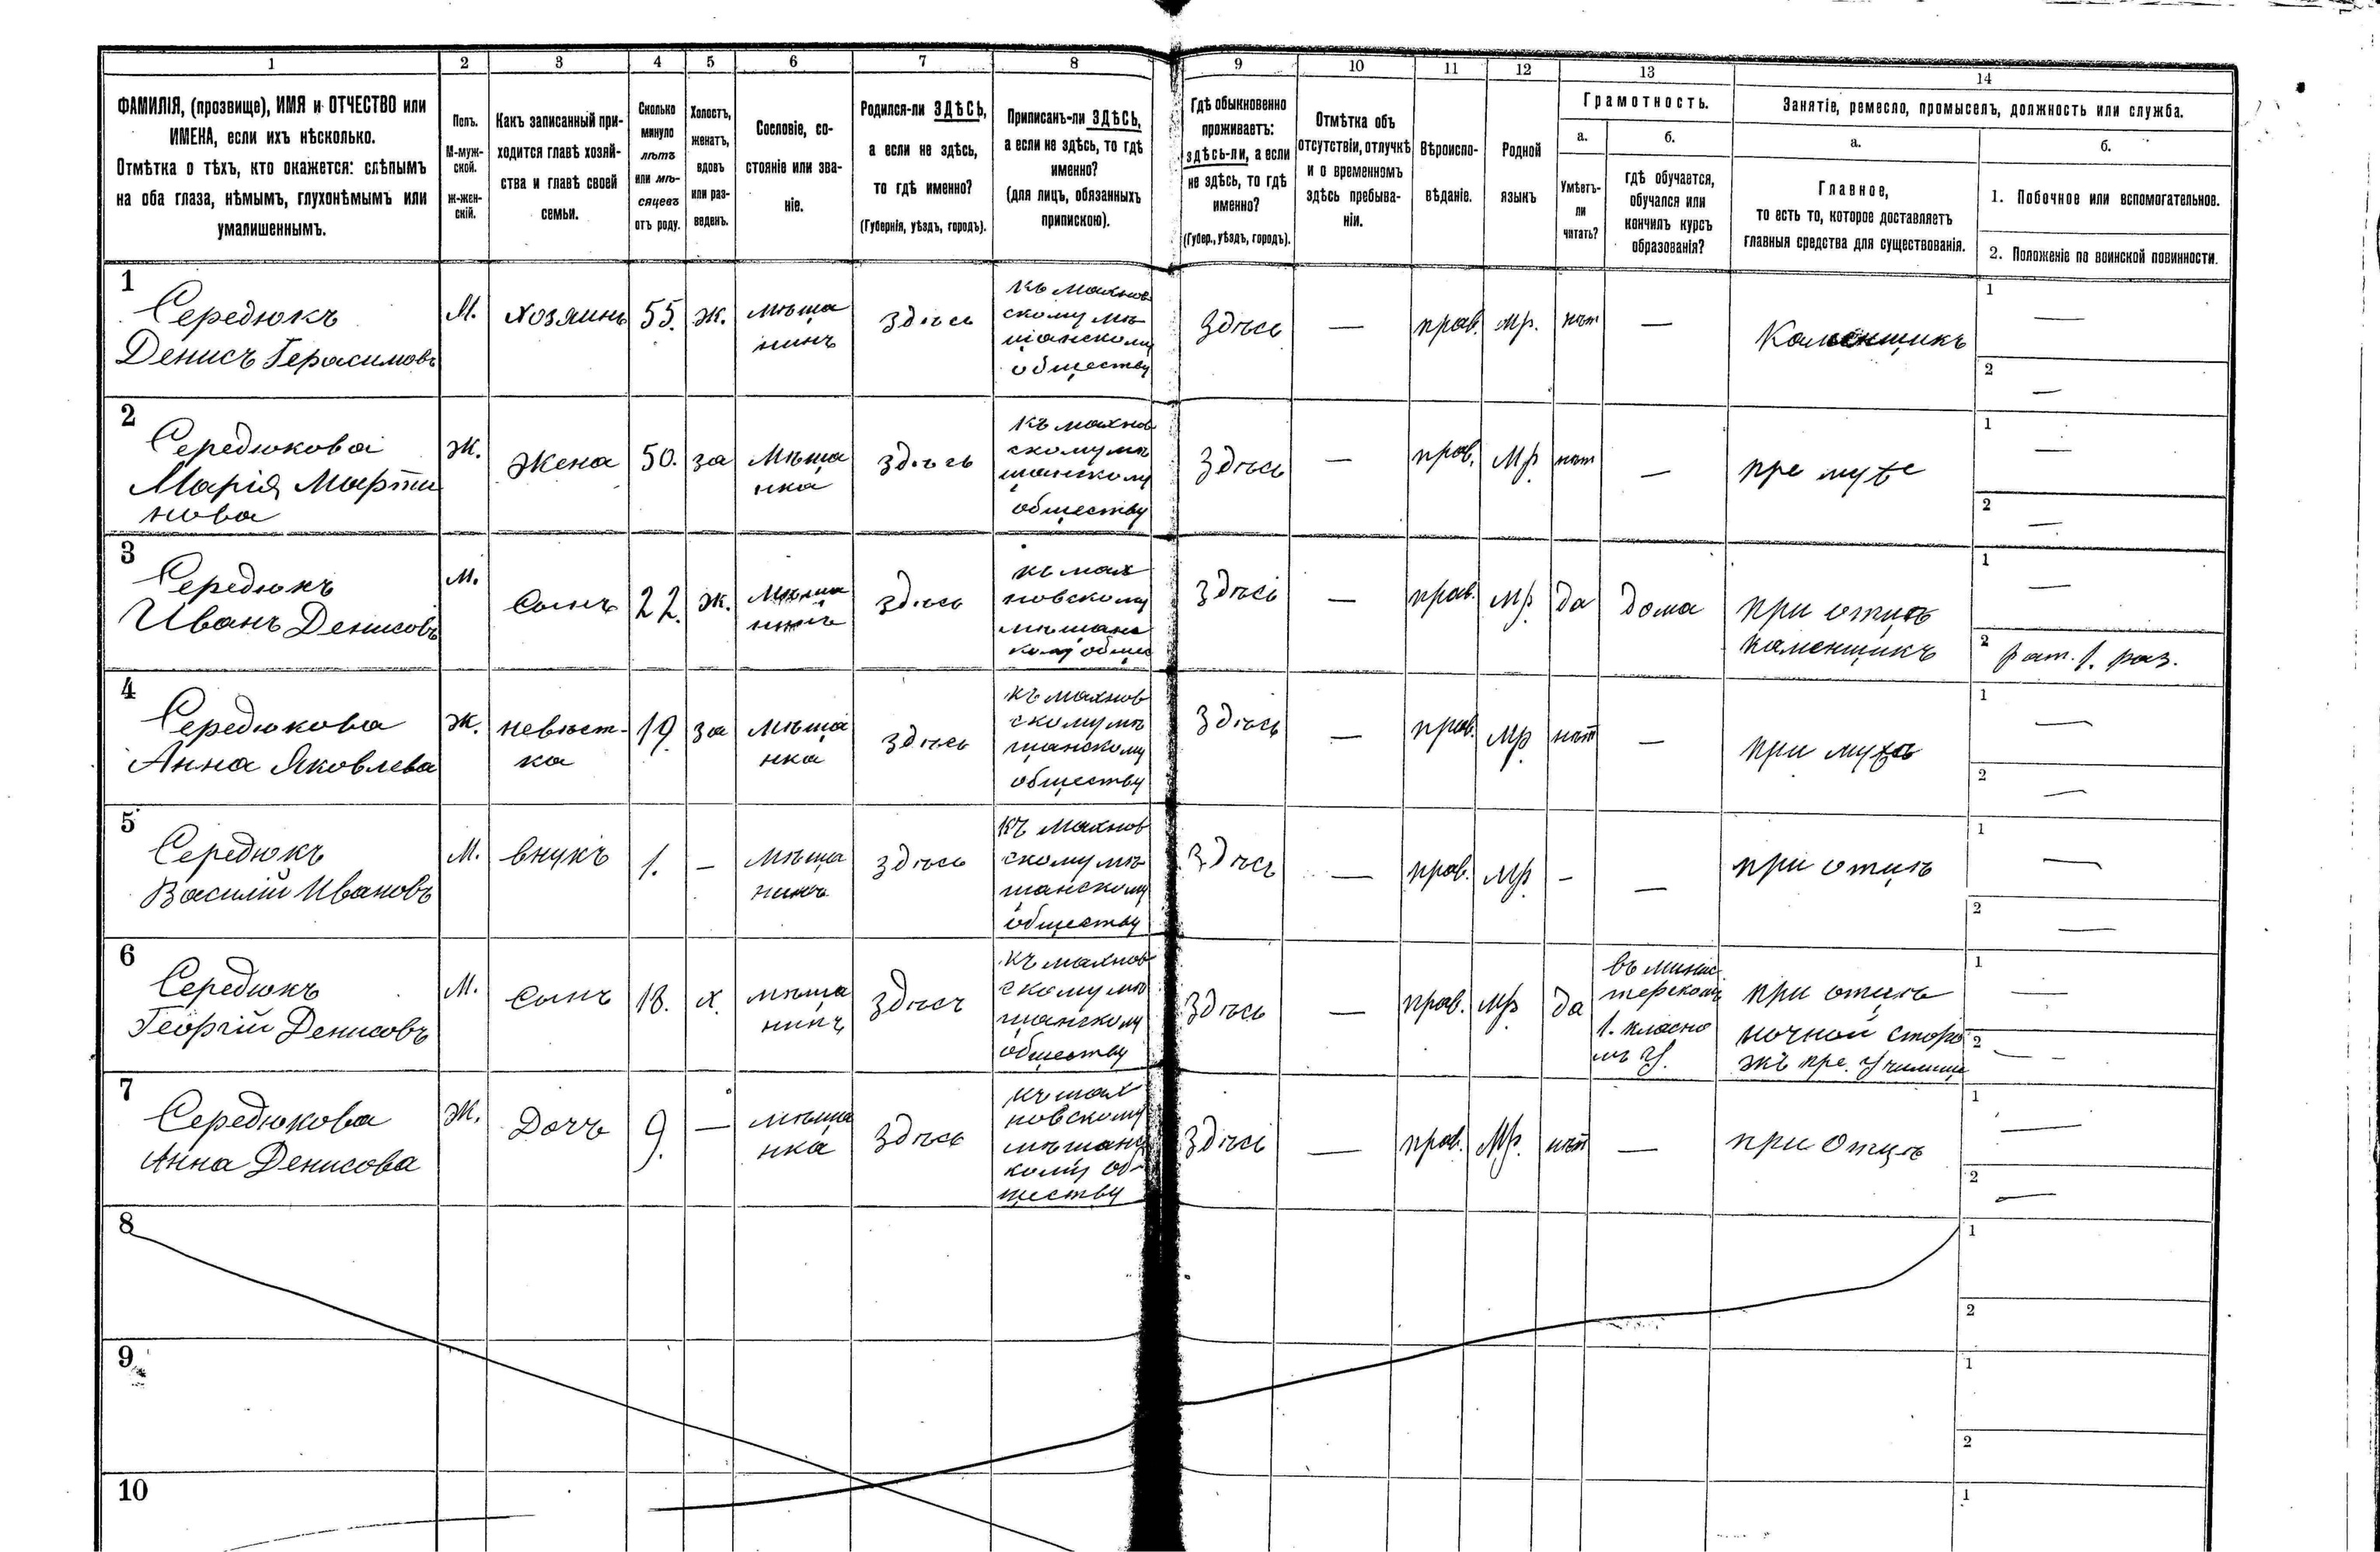 1 2 3 4 5 6 7 8 9 10 11 12 13 14
ФАМИЛІЯ, (прозвище), ИМЯ и ОТЧЕСТВО или
ИМЕНА, если ихъ нѣсколько.
Отмѣтка о тѣхъ, кто окажется: слѣпымъ
на оба глаза, нѣмымъ, глухонѣмымъ или
умалишеннымъ.
Полъ.
М-муж-
ской.
ж-жен-
скій.
Какъ записанный при-
ходится главѣ хозяй-
ства и главѣ своей
семьи.
Сколько
минуло
лѣтъ
или мѣ-
сяцевъ
отъ роду.
Холостъ,
женатъ,
вдовъ
или раз-
веденъ.
Сословіе, со-
стояніе или зва-
ніе.
Родился-ли ЗДѢСЬ,
а если не здѣсь,
то гдѣ именно?
(Губернія, уѣздъ, городъ).
Приписанъ-ли ЗДѢСЬ,
а если не здѣсь, то гдѣ
именно?
(для лицъ, обязанныхъ
припискою).
Гдѣ обыкновенно
проживаетъ:
здѣсь-ли, а если
не здѣсь, то гдѣ
именно?
(Губер., уѣздъ, городъ).
Отмѣтка объ
отсутствіи, отлучкѣ
и о временномъ
здѣсь пребыва-
ніи.
Вѣроиспо-
вѣданіе.
Родной
языкъ
Грамотность.
а.
Умѣетъ-
ли
читать?
б.
гдѣ обучается,
обучался или
кончилъ курсъ
образованія?
Занятіе, ремесло, промыселъ, должность или служба.
а.
Главное,
то есть то, которое доставляетъ
главныя средства для существованія.
б.
1. Побочное или вспомогательное.
2. Положеніе по воинской повинности.
1
Середюкъ
Денисъ Герасимовъ
М.
хозяинъ
55.
ж.
мѣща
нинъ
здѣсь
къ махнов
скому мѣ
щанскому
обществу
Здѣсь
—
прав.
мр.
нѣт
—
Каменщикъ
1 —
2 —
2
Середюкова
Марія Марти
нова
Ж.
Жена
50.
за
мѣща
нка
здѣсь
къ махнов
скому мѣ
щанскому
обществу
Здѣсь
—
прав.
мр
нѣт
—
пре муже
1 —
2 —
3
Середюкъ
Иванъ Денисовъ
М.
Сынъ
22.
ж.
мѣща
нинъ
здѣсь
къ мах
новскому
мѣщанс
кому общес
здѣсь
—
прав.
мр
да
дома
при отцѣ
каменщикъ
1 —
2 рат. 1. раз.
4
Середюкова
Анна Яковлева
ж.
невѣст-
ка
19.
за
мѣща
нка
здѣсь
къ махнов
скому мѣ
щанскому
обществу
Здѣсь
—
прав.
мр
нѣт
—
при мужѣ
1 —
2 —
5
Середюкъ
Василій Ивановъ
М.
внукъ
1.
—
мѣща
нинъ
здѣсь
къ махнов
скому мѣ
щанскому
обществу
Здѣсь
—
прав.
мр
-
—
при отцѣ
1 —
2 —
6
Середюкъ
Георгій Денисовъ
М.
Сынъ
18.
х.
мѣща
нинъ
здѣсь
къ махнов
скому мѣ
щанскому
обществу
Здѣсь
—
прав.
мр
да
въ минис
терском
1. класно
мъ у.
при отцѣ
ночной сторо
жъ пре училище
1 —
2 —
7
Середюкова
Анна Денисова
Ж.
Дочъ
9.
—
мѣща
нка
здѣсь
къ мах
новскому
мѣщанс
кому об-
ществу
Здѣсь
—
прав.
мр.
нѣт
—
при Отцѣ
1 —
2 —
8
1
2
9
1
2
10
1